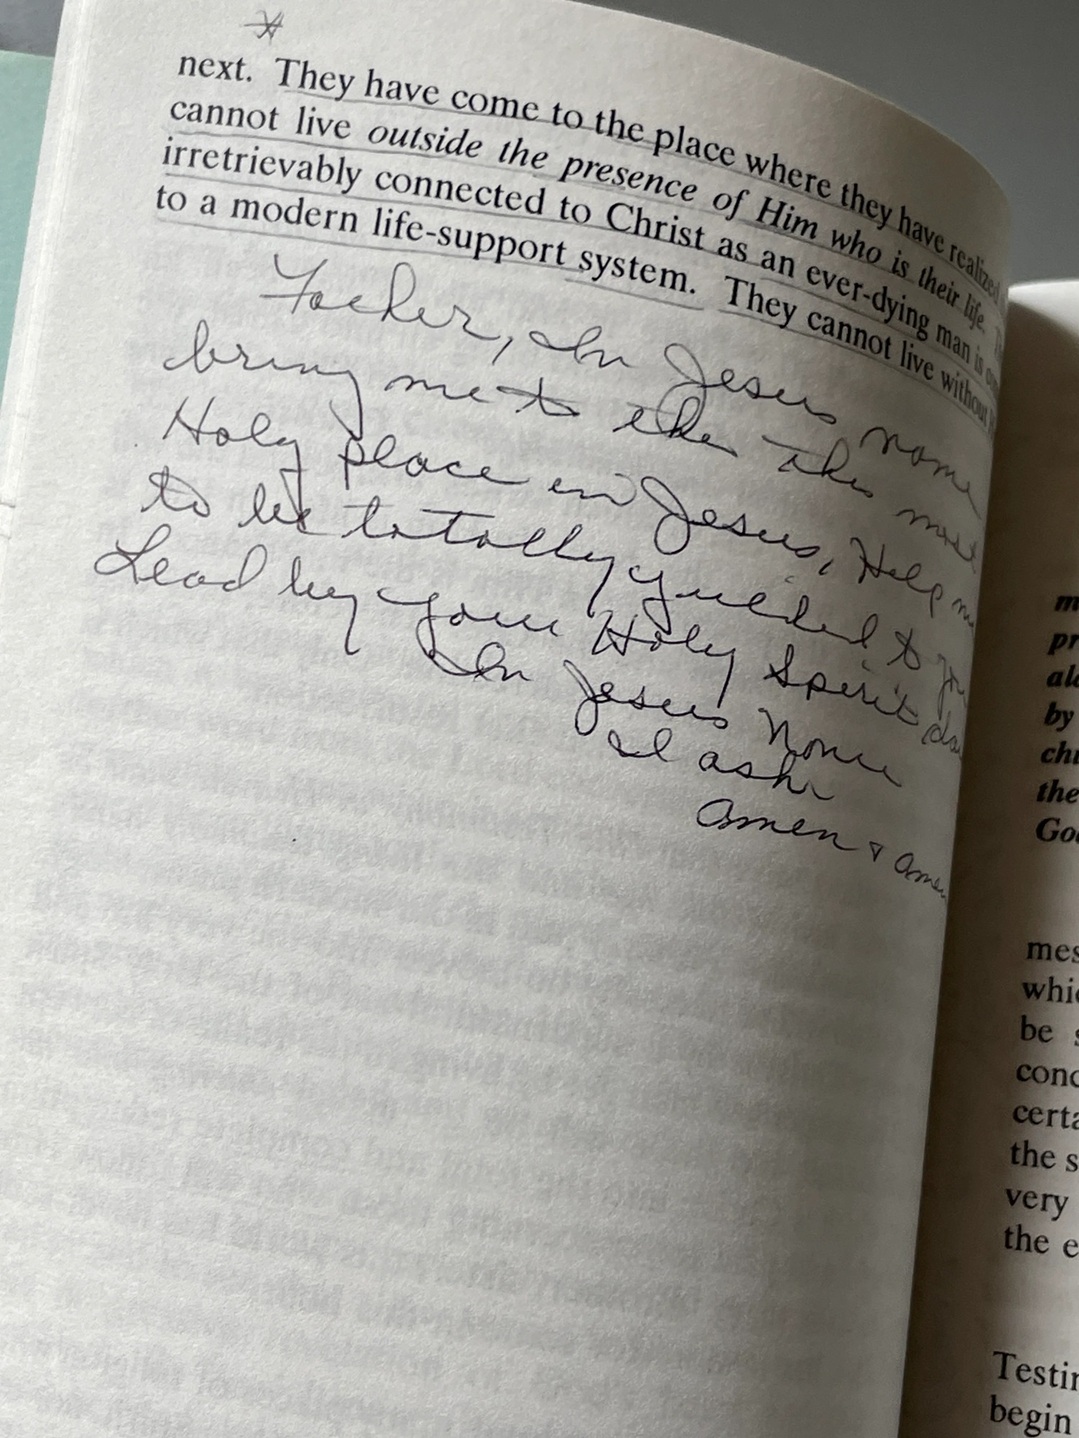 next. They have come to the place where they have realized
cannot live outside the presence of Him who is their life.
irretrievably connected to Christ as an ever-dying man is
to a modern life-support system. They cannot live without
Father, In Jesus name
bring me to the this most
Holy place in Jesus, Help me
to be totally yielded to you
Lead by your Holy Spirit
In Jesus Name
I ask
Amen & Amen
by
the
mes
be
the s
very
the e
begin